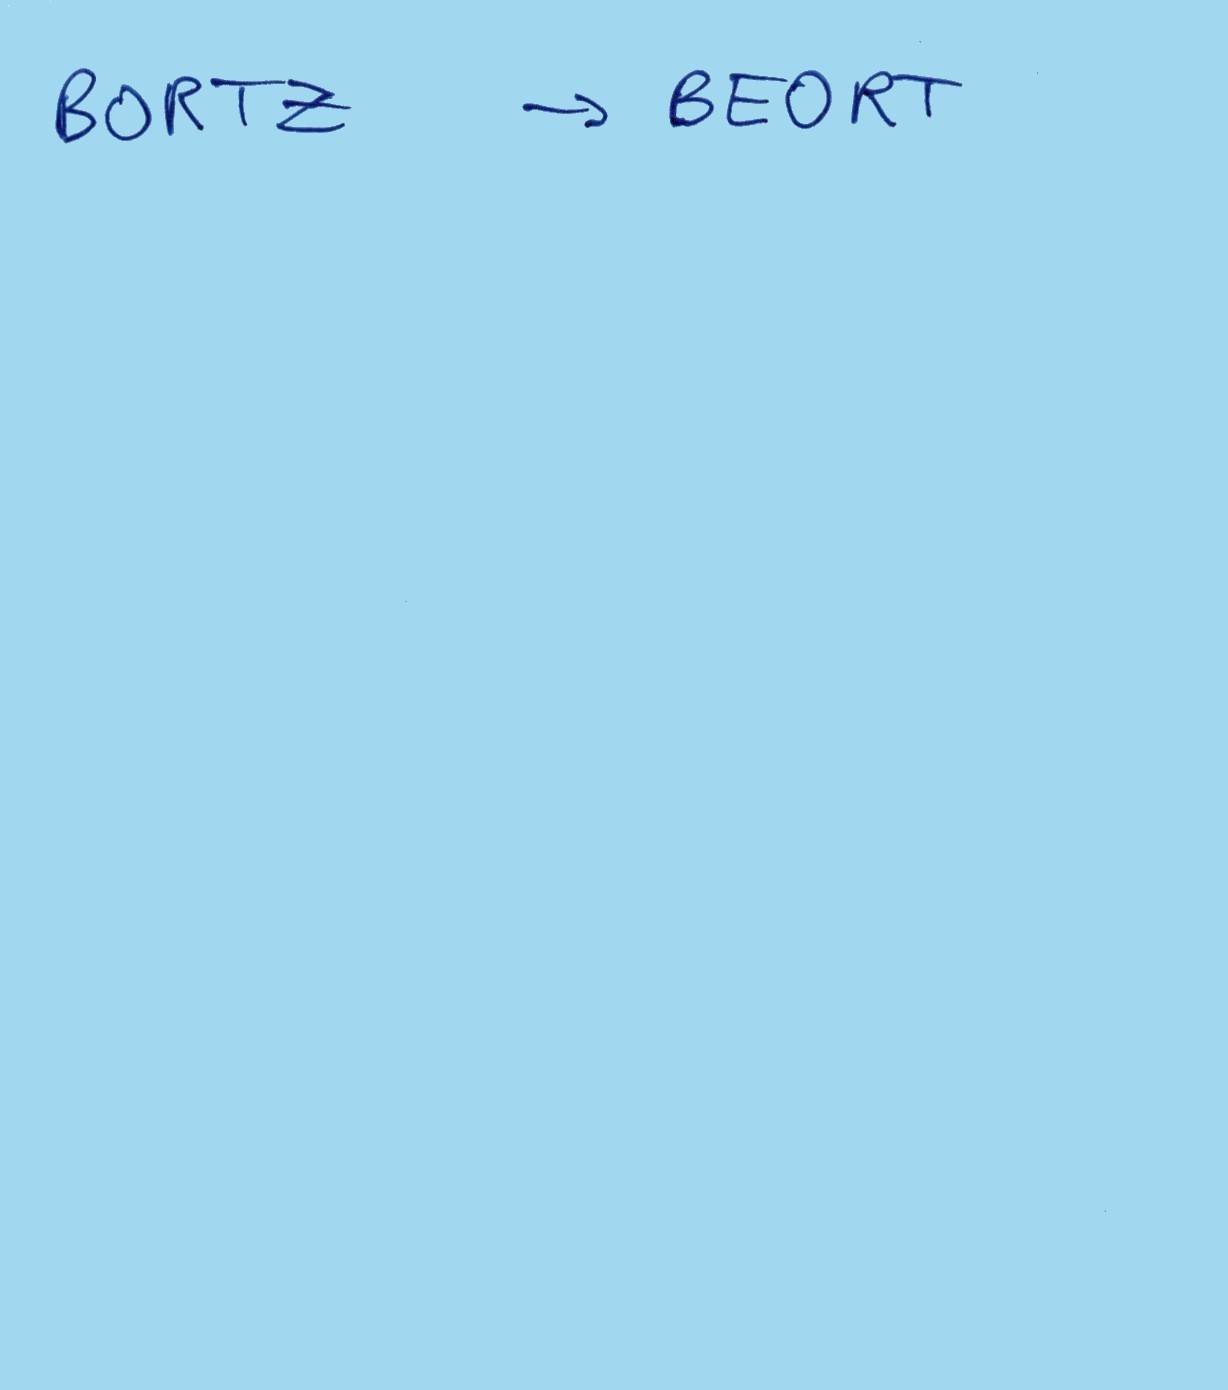 BORTZ → BEORT